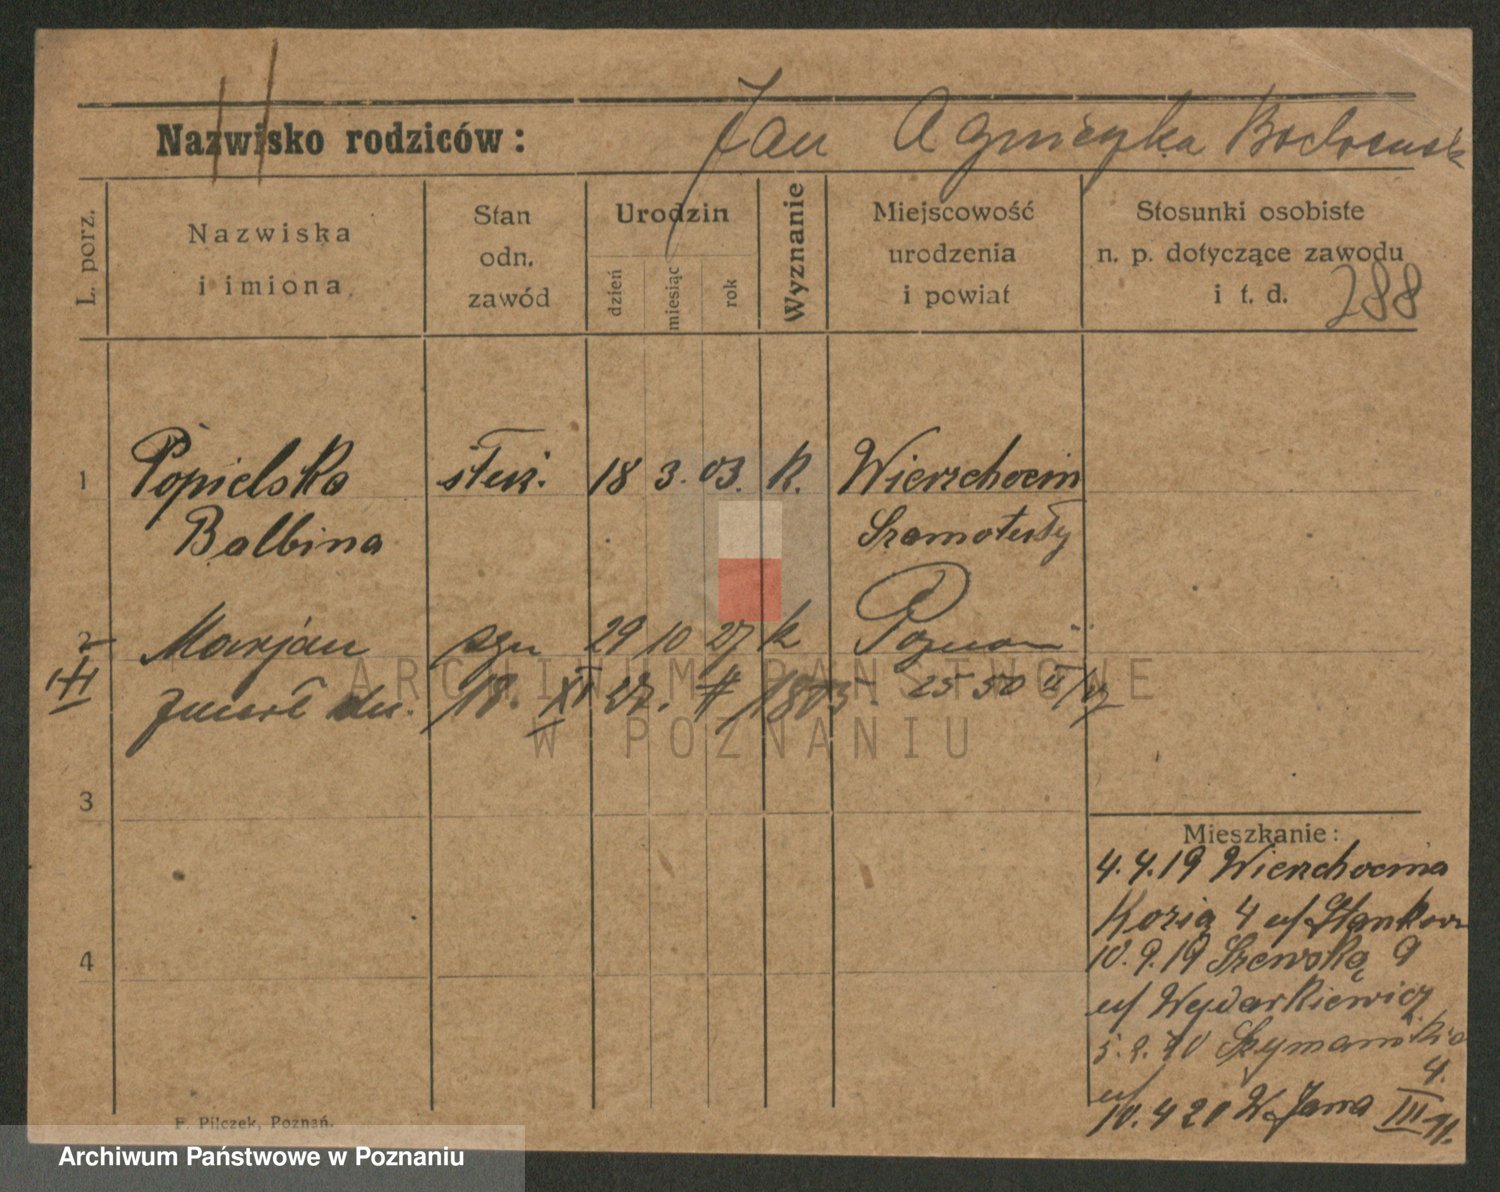 Nazwisko rodziców: Jan Agnieszka
L. porz.
Nazwiska
i imiona
Stan
odn.
zawód
Urodzin
dzień
miesiąc
rok
Wyznanie
Miejscowość
urodzenia
i powiat
Stosunki osobiste
n. p. dotyczące zawodu
i t. d.
288
1 Popielska służ. 18 3. 03. k. Wierzchocin
Balbina Szamotuły
2 Marjan syn 29 10 27 k Poznań
zmarł dn. 18. XI 27. # 1805 2550 II/27
3
Mieszkanie:
4.4.19 Wierzchocina
Kozia 4 u/
10.9.19 Szewska 9
u/
5.2.20
4
u/
10.4 20 W. Jana III
F. Pilczek, Poznań.
ARCHIWUM PAŃSTWOWE
W POZNANIU
Archiwum Państwowe w Poznaniu